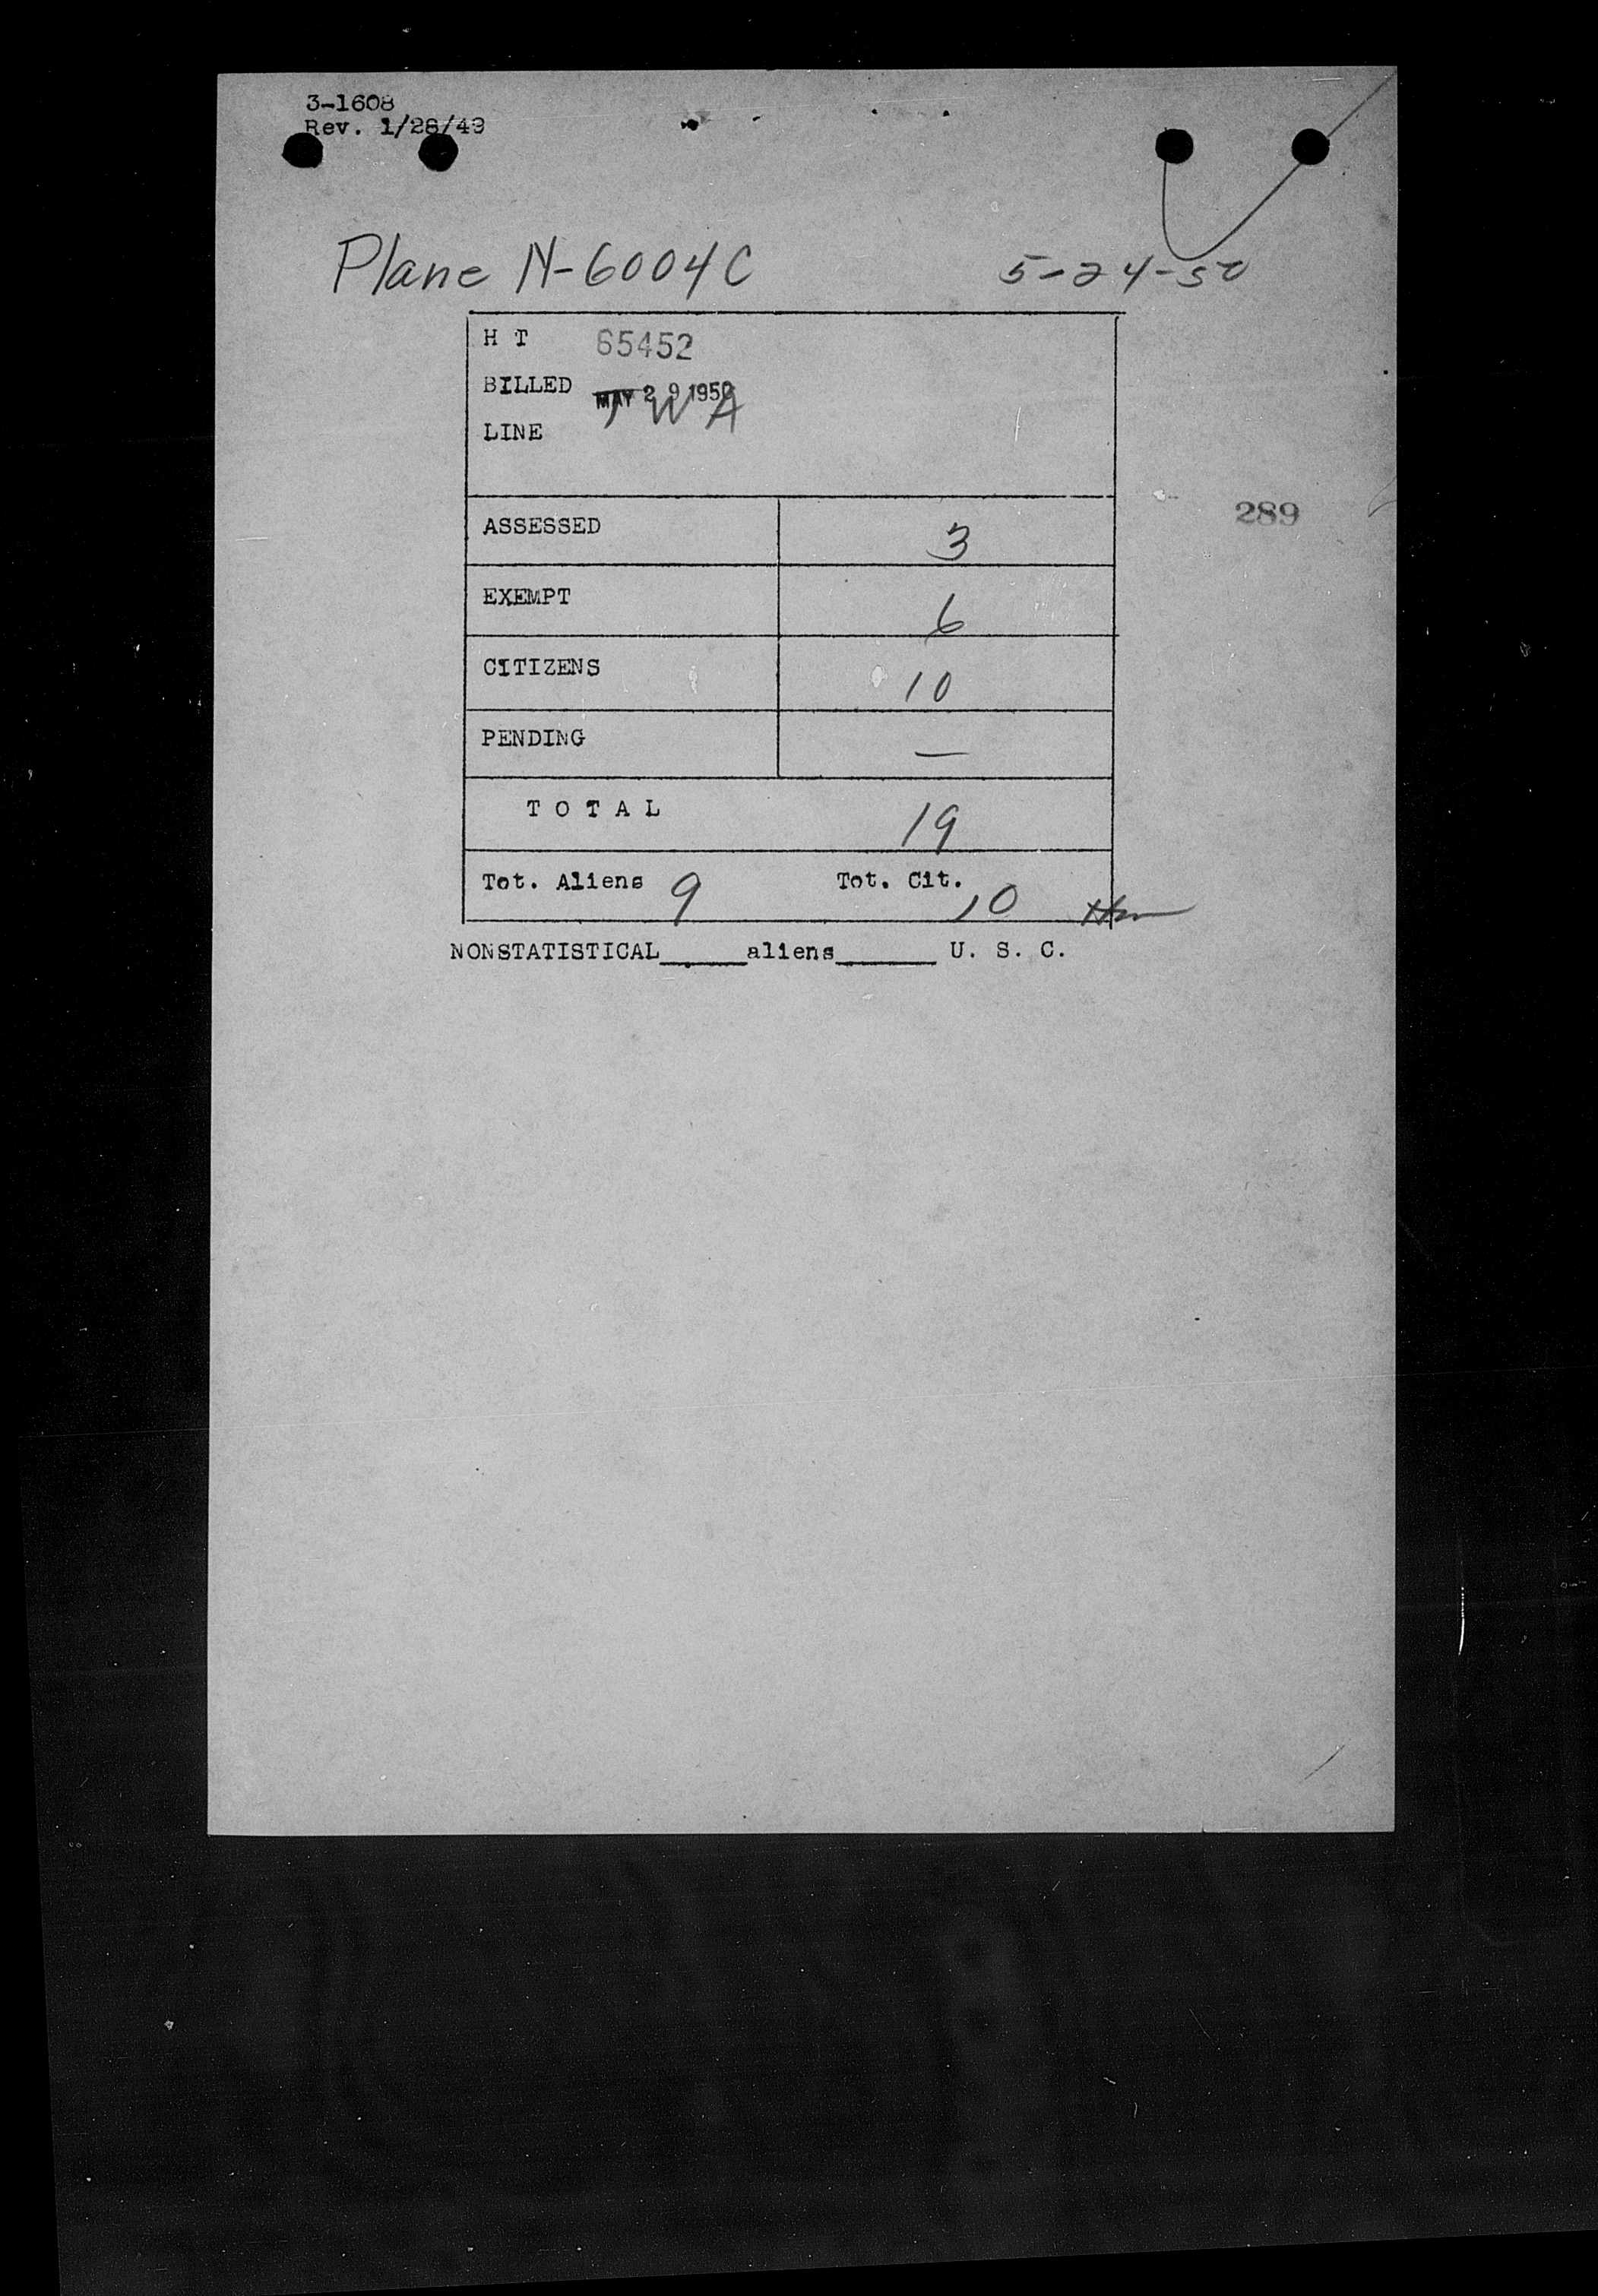 3-1608
Rev. 1/28/49
Plane N-6004C 5-24-50
H T 65452
BILLED MAY 29 1950
LINE TWA
289
ASSESSED 3
EXEMPT 6
CITIZENS 10
PENDING —
T O T A L 19
Tot. Aliens 9 Tot. Cit. 10
NONSTATISTICAL_____aliens______ U. S. C.